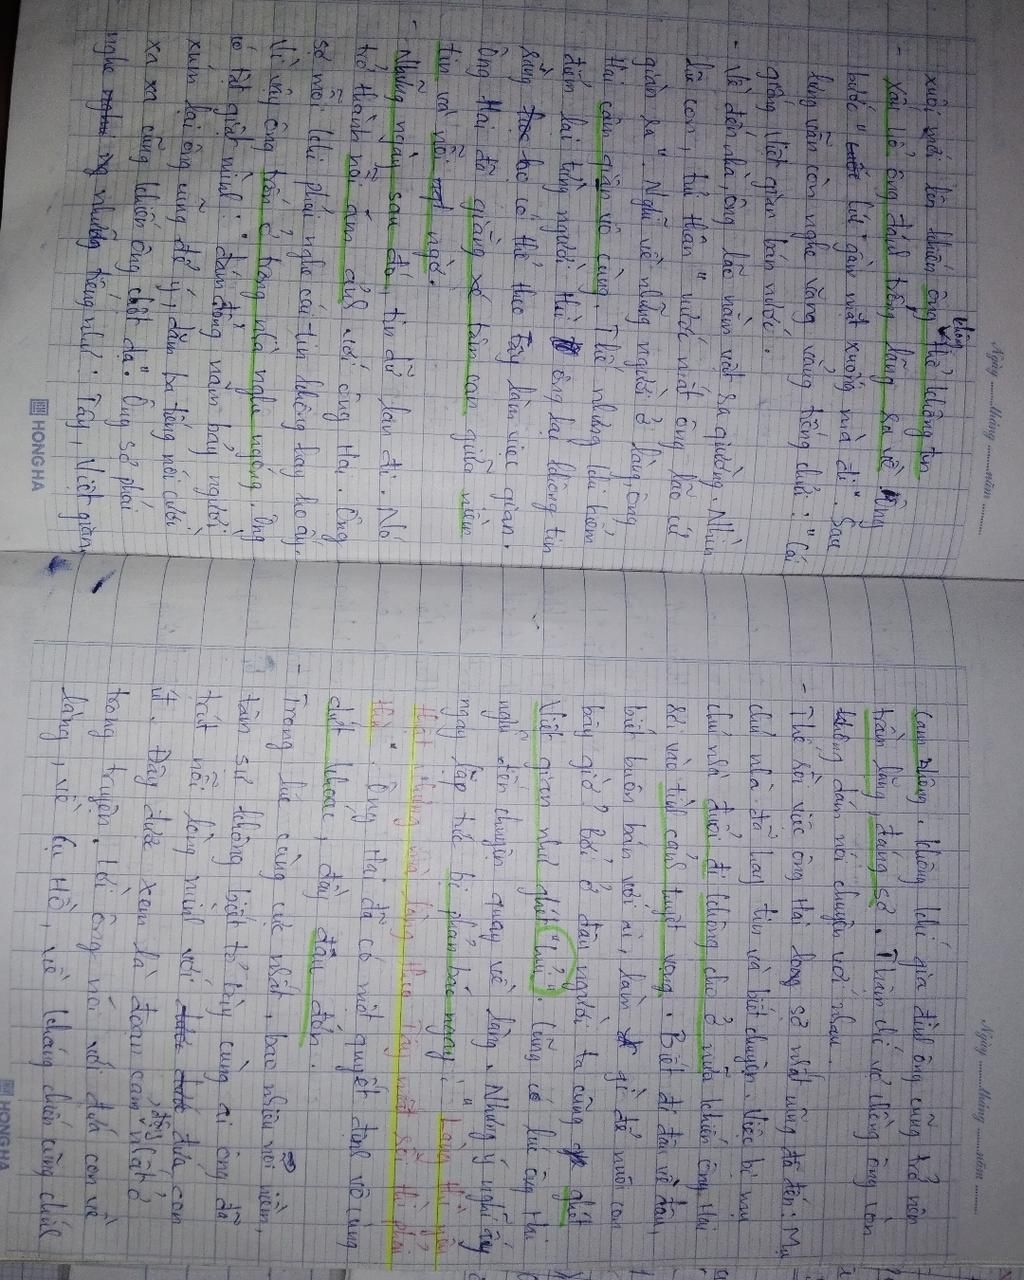 Ngày ........ tháng ........ năm ........
xuôi mới lên khiến ông không thể không tin
- Xấu hổ, ông đánh trống lảng ra về. Ông
bước "cúi gằm mặt xuống mà đi". Sau
lưng vẫn còn nghe văng vẳng tiếng chửi: "Cái
giống Việt gian bán nước".
- Về đến nhà, ông lão nằm vật ra giường. Nhìn
lũ con, tủi thân "nước mắt ông lão cứ
giàn ra". Nghĩ về những người ở làng, ông
Hai căm giận vô cùng. Thế nhưng khi kiểm
điểm lại từng người thì ông lại không tin
rằng họ có thể theo Tây làm việc gian.
Ông Hai đã giằng xé tâm can giữa niềm
tin và nỗi ngờ.
- Những ngày sau đó, tin dữ lan đi. Nó
trở thành nỗi ám ảnh với ông Hai. Ông
sợ mỗi khi phải nghe cái tin không hay ho ấy.
Vì vậy ông trốn ở trong nhà nghe ngóng. Ông
cứ tật giật mình: "đám đông năm bảy người
xúm lại ông cũng để ý, dăm ba tiếng nói cười
xa xa cũng khiến ông chột dạ". Ông sợ phải
nghe những tiếng như: Tây, Việt gian,
HONG HA
Ngày ........ tháng ........ năm ........
cam nhông. Không khí gia đình ông cũng trở nên
trầm lắng, đáng sợ. Thậm chí vợ chồng ông còn
không dám nói chuyện với nhau.
- Thế rồi việc ông Hai lo sợ nhất cũng đã đến: Mụ
chủ nhà đã hay tin và biết chuyện. Việc bị mụ
chủ nhà đuổi đi không cho ở nữa khiến ông Hai
rơi vào tình cảnh tuyệt vọng. Biết đi đâu về đâu,
biết buôn bán với ai, làm gì để nuôi con
bây giờ? Bởi ở đâu người ta cũng ghét
Việt gian như ghét "hủi". Cũng có lúc ông Hai
nghĩ đến chuyện quay về làng. Nhưng ý nghĩ ấy
ngay lập tức bị phản bác ngay: "Làng thì yêu
thật nhưng làng theo Tây mất rồi thì phải
thù". Ông Hai đã có một quyết định vô cùng
dứt khoát, đầy đau đớn.
- Trong lúc cùng cực nhất, bao nhiêu nỗi niềm,
tâm sự không biết tỏ bày cùng ai ông đã
trút nỗi lòng mình với đứa con
út. Đây được xem là đoạn cảm động nhất ở
trong truyện. Lời ông nói với đứa con về
làng, về Cụ Hồ, về kháng chiến cũng chính
HONG HA